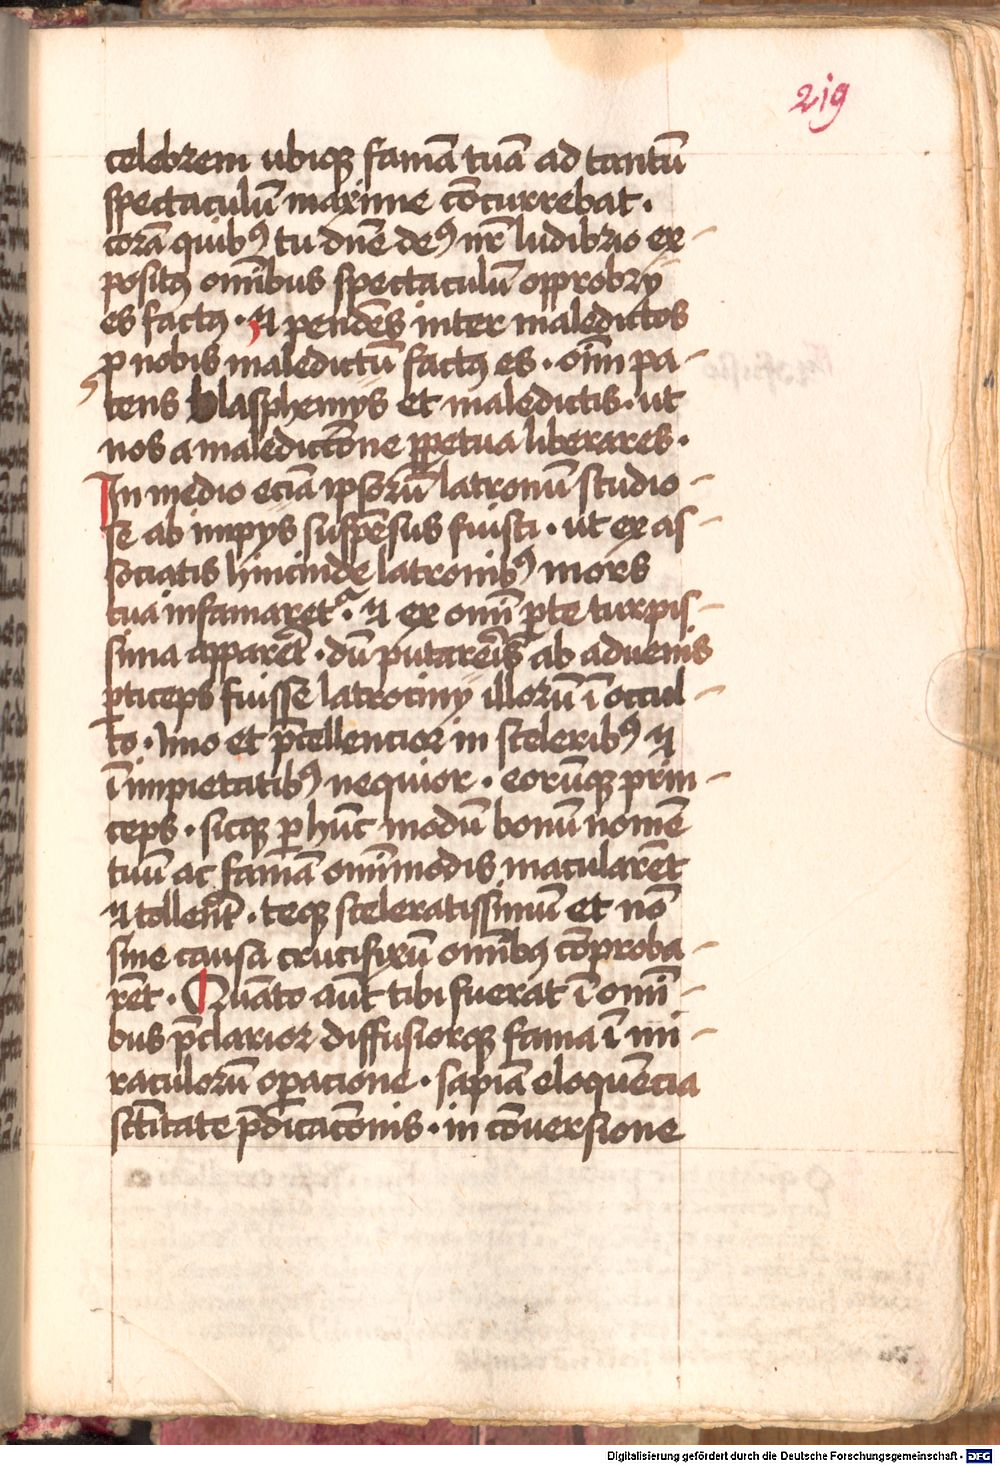 219
celebrem ubiqꝫ famā tuā ad tantū
spectaculū maxime cōcurrebat .
corā quibꝰ tu dn̄e deꝰ nr̄ ludibrio ex-
positꝰ om̄ibus spectaculū opprobrÿ
es factꝰ . ⁊ pendēs inter maledictos
ꝓ nobis maledictū factꝰ es . oīm pa-
tens blasphemÿs et maledictis . ut
nos a malediccōne ꝑpetua liberares .
In medio eciā ipsorū latronū studio-
se ab impÿs suspēsus fuisti . ut ex as-
sociatis hincinde latronibꝰ mors
tua infamaretᷣ . ⁊ ex om̄i ꝑte turpis-
sima apparēt . dū putarēis ab aduenis
ꝑticeps fuisse latrocinÿ illorū ī occul-
to . Imo et p̄cellencior in sceleribꝰ ⁊
ī impietatibꝰ nequior . eorūqꝫ prin-
ceps . sicqꝫ ꝑ hūc modū bonū nomē
tuū ac famā om̄imodis macularēt
⁊ tollerēt . teqꝫ sceleratissimū et nō
sine causa crucifixū om̄ibꝰ cōproba-
rēt . Quāto aūt tibi fuerat ī omī-
bus p̄clarior diffusiorqꝫ fama ī mi-
raculorū oꝑacione . sapīa eloquēcia
sc̄titate p̄dicacōnis . in cōuersione
Digitalisierung gefördert durch die Deutsche Forschungsgemeinschaft - DFG